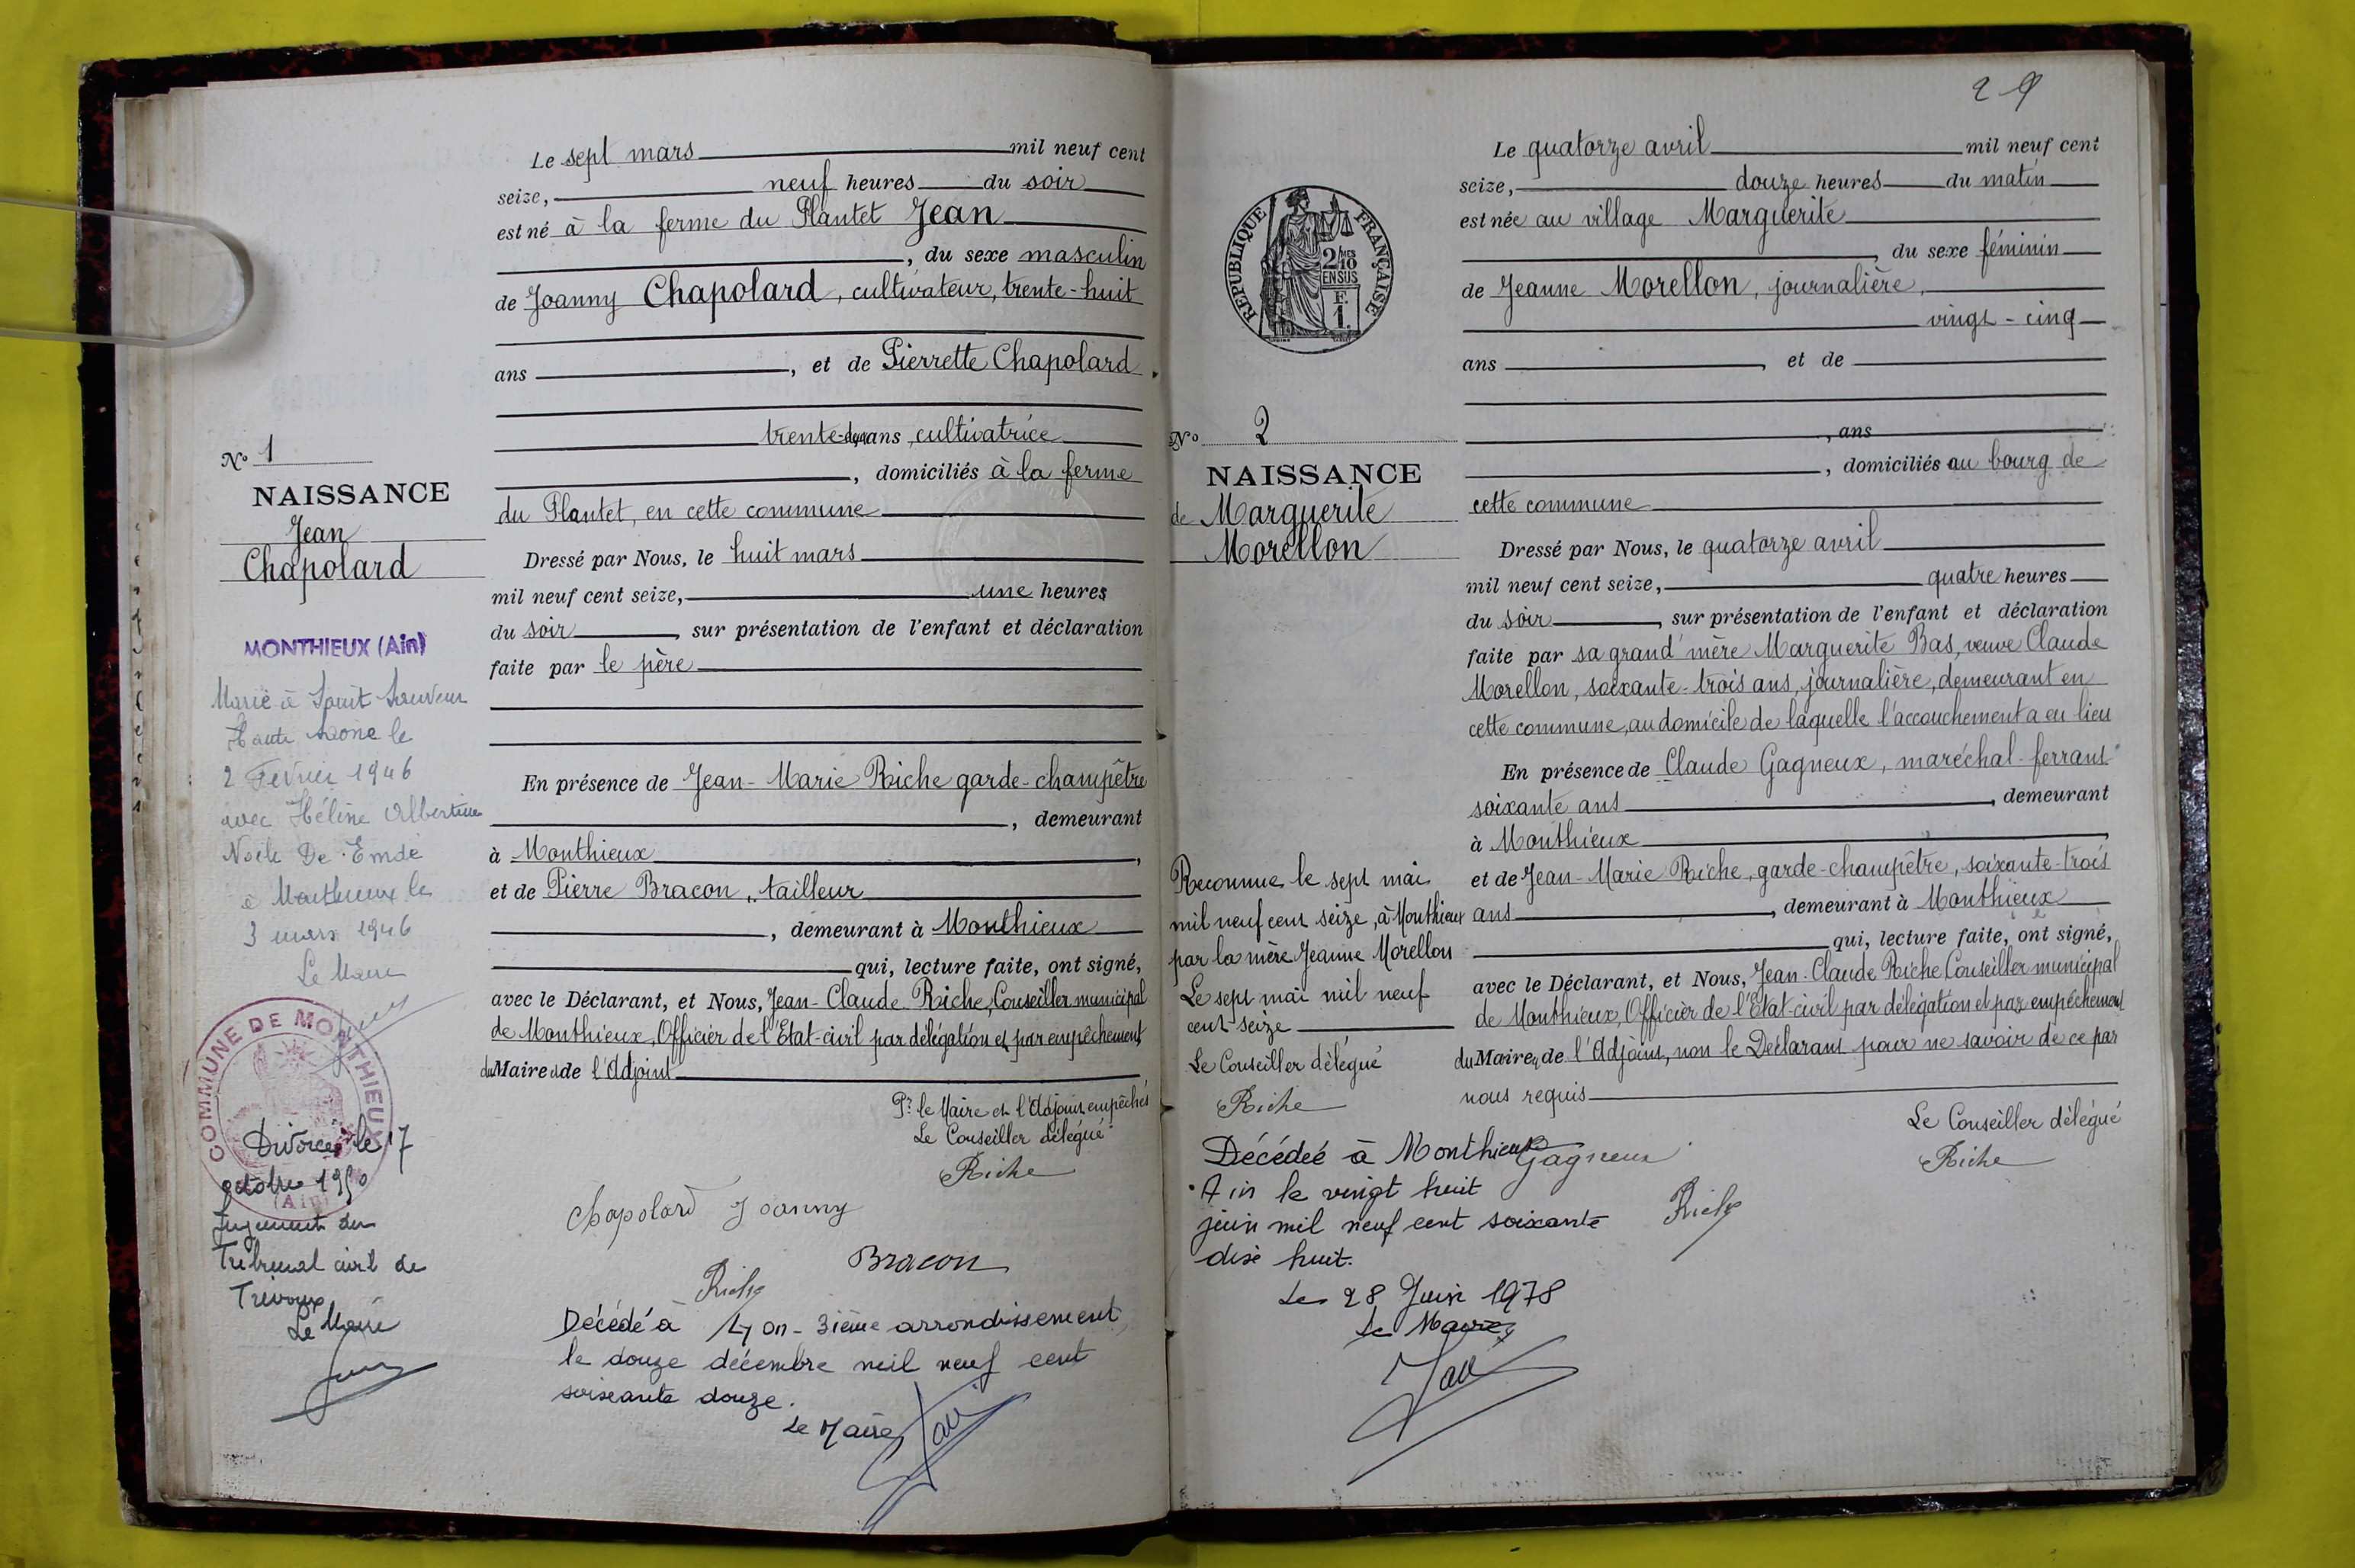 Le sept mars mil neuf cent
seize, neuf heures du soir
est né à la ferme du Plantet Jean
, du sexe masculin
de Joanny Chapolard, cultivateur, trente-huit
ans , et de Pierrette Chapolard
trente- ans, cultivatrice
, domiciliés à la ferme
du Plantet, en cette commune
Dressé par Nous, le huit mars
mil neuf cent seize, une heures
du soir , sur présentation de l'enfant et déclaration
faite par le père
En présence de Jean-Marie Riche garde-champêtre
, demeurant
à Monthieux ,
et de Pierre Bracon, tailleur
, demeurant à Monthieux
qui, lecture faite, ont signé,
avec le Déclarant, et Nous, Jean-Claude Riche, Conseiller municipal
de Monthieux, Officier de l'Etat-civil par délégation et par empêchement
du Maire et de l'Adjoint
Pr le Maire et l'Adjoint empêchés
Le Conseiller délégué
Riche
Chapolard Joanny
Bracon
Riche
Décédé à Lyon - 3ième arrondissement,
le douze décembre mil neuf cent
soixante douze.
Le Maire
N° 1
NAISSANCE
Jean
Chapolard
MONTHIEUX (Ain)
Marié à Saint Sauveur
Haute Saone le
2 Fevrier 1946
avec Hélène Albertine
De Emde
à Monthieux le
3 mars 1946
Le Maire
COMMUNE DE MONTHIEUX
(Ain)
Divorcé le 17
octobre 1950
Jugement du
Tribunal civil de
Trévoux
Le Maire
29
REPUBLIQUE FRANÇAISE
2/10 MES
EN SUS
F.
1.
Le quatorze avril mil neuf cent
seize, douze heures du matin
est née au village Marguerite
, du sexe féminin
de Jeanne Morellon, journalière,
vingt-cinq
ans , et de
, ans
, domiciliés au bourg de
cette commune
Dressé par Nous, le quatorze avril
mil neuf cent seize, quatre heures
du soir , sur présentation de l'enfant et déclaration
faite par sa grand'mère Marguerite Bas, veuve Claude
Morellon, soixante-trois ans, journalière, demeurant en
cette commune, au domicile de laquelle l'accouchement a eu lieu
En présence de Claude Gagneux, maréchal-ferrant
soixante ans , demeurant
à Monthieux ,
et de Jean-Marie Riche, garde-champêtre, soixante-trois
ans , demeurant à Monthieux
qui, lecture faite, ont signé,
avec le Déclarant, et Nous, Jean-Claude Riche Conseiller municipal
de Monthieux, Officier de l'Etat-civil par délégation et par empêchement
du Maire et de l'Adjoint, non le Déclarant pour ne savoir de ce par
nous requis
Le Conseiller délégué
Riche
Gagneux
Riche
N° 2
NAISSANCE
de Marguerite
Morellon
Reconnue le sept mai
mil neuf cent seize, à Monthieux
par la mère Jeanne Morellon
Le sept mai mil neuf
cent seize
Le Conseiller délégué
Riche
Décédée à Monthieux
Ain le vingt huit
juin mil neuf cent soixante
dix huit.
Le 28 Juin 1978
Le Maire,